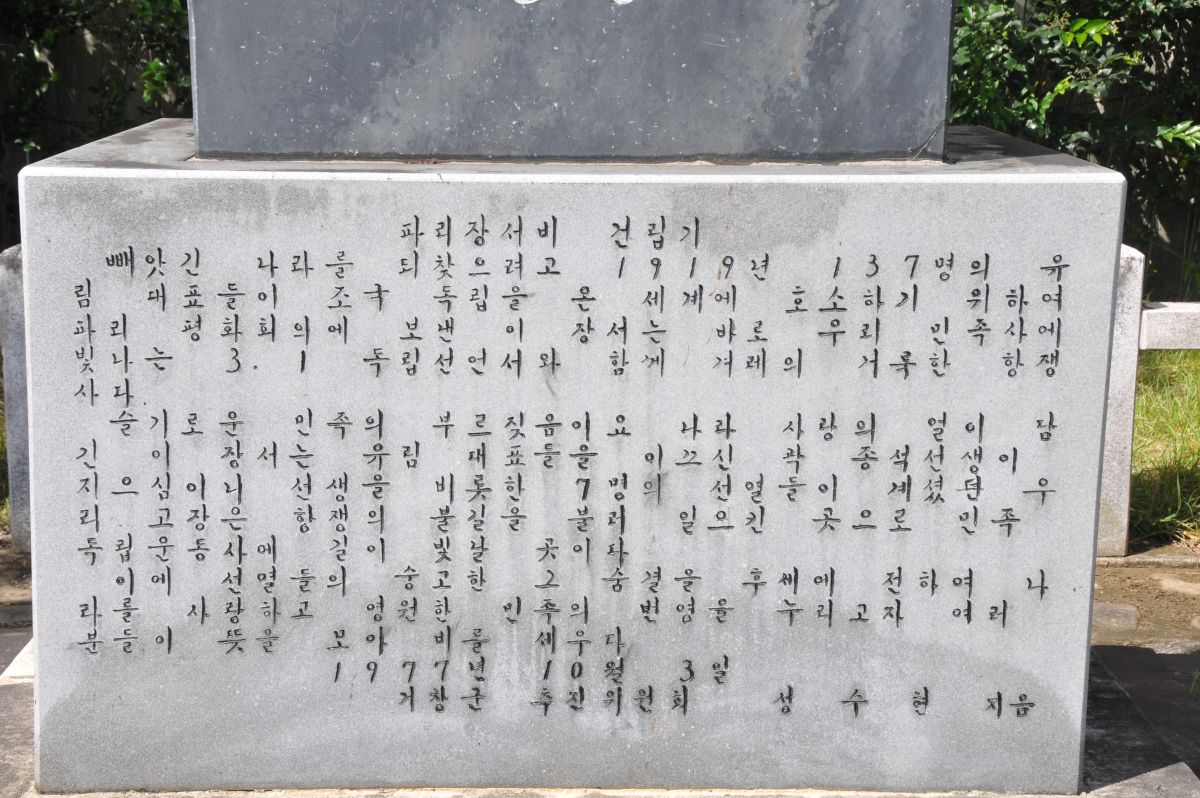 파리장서비 건립기
빼앗긴 나라를 되찾으려고 1919년 137명의 유
림대표들이 조국 독립을 온 세계에 호소하기 위하여
파리평화회의에 보낸 이 장서는 바로 우리 민족사에
빛나는 3.1 독립선언서와 함께 겨레의 거룩한 항쟁
사다
슬기로운 민족의 부르짖음이요 나라사랑의 얼이 담
긴 이 장서는 유림 대표들을 이끄신 곽종석 선생이
지으심이니 선생을 비롯한 7명의 선열들이 계셨던 우
리 고장은 항쟁의 불길을 불러 일으킨 곳으로 민족
독립운동사에 길이 빛날 곳이다
이에 선열들의 숭고한 그 숨결을 후세에 전하여 나
라를 사랑하고 영원한 민족의 번영을 누리고자 여러
분들이 뜻을 모아 비를 세우다
1977년 10월 3일
거창군 추진위원회 성수현 지음